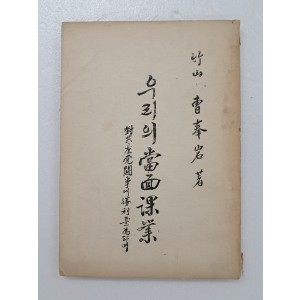 竹山 曺奉岩 著
우리의 當面課業
對共產党鬪爭에 勝利를 爲하여